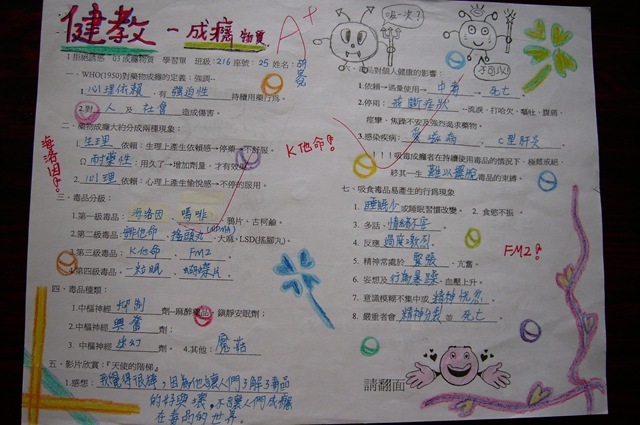 健教 — 成癮物質
A+
吸一次?
不可以!
1拒絕誘惑 03成癮物質 學習單 班級:216 座號:25 姓名:
一、WHO(1950)對藥物成癮的定義:強調--
1.心理依賴、有強迫性 持續用藥行為。
2.對人及社會造成傷害。
二、藥物成癮大約分成兩種現象:
1.生理依賴:生理上產生依賴感→停藥→不舒服。
耐藥性:用久了→增加劑量,才有效
2.心理依賴:心理上產生愉悅感→不停的服用。
三、毒品分級:
1.第一級毒品:海洛因、嗎啡、鴉片、古柯鹼。
2.第二級毒品:安非他命、搖頭丸(MDMA)、大麻、LSD(搖腳丸)
3.第三級毒品:K他命、FM2。
4.第四級毒品:一粒眠、蝴蝶片。
四、毒品種類:
1.中樞神經抑制劑--麻醉藥品、鎮靜安眠劑;
2.中樞神經興奮劑;
3.中樞神經迷幻劑。 4.其他:魔菇
五、影片欣賞:『天使的階梯』
1.感想:我覺得很棒,因為他讓人們了解了毒品
的好與壞,不讓人們成癮
在毒品的世界。
海洛因!
K他命!
FM2!
六、毒品對個人健康的影響:
1.依賴→過量使用→中毒→死亡
2.停用:戒斷症狀--流淚、打哈欠、嘔吐、腹痛、
痙攣、焦躁不安及強烈渴求藥物。
3.感染疾病:愛滋病、C型肝炎
!!!吸毒成癮者在持續使用毒品的情況下,極難戒絕,
終其一生難以擺脫毒品的束縛。
七、吸食毒品易產生的行為現象
1.睡眠少或睡眠習慣改變。 2.食慾不振。
3.多話、情緒不安。
4.反應過度激烈。
5.精神常處於緊張、亢奮。
6.妄想及行為暴躁、血壓上升。
7.意識模糊不集中或精神恍忽。
8.嚴重者會精神分裂並死亡。
請翻面